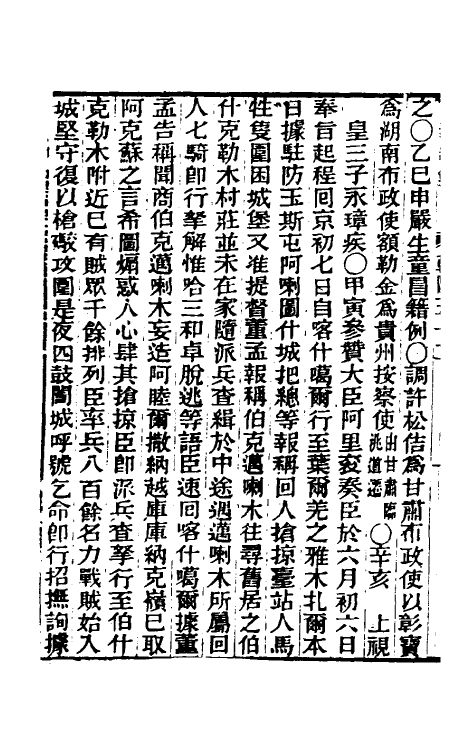 之〇乙巳申嚴生童冒籍例〇調許松佶爲甘肅布政使以彰寶
爲湖南布政使額勒金爲貴州按察使由甘肅臨洮道遷〇辛亥 上視
皇三子永璋疾〇甲寅參贊大臣阿里袞奏臣於六月初六日
奉旨起程回京初七日自喀什噶爾行至葉爾羌之雅木扎爾本
日據駐防玉斯屯阿喇圖什城把總等報稱回人搶掠臺站人馬
牲隻圍困城堡又准提督董孟報稱伯克邁喇木往尋舊居之伯
什克勒木村莊並未在家隨派兵查緝於中途遇邁喇木所屬回
人七騎卽行拏解惟哈三和卓脫逃等語臣速回喀什噶爾據董
孟告稱聞商伯克邁喇木妄造阿睦爾撒納越庫庫納克嶺已取
阿克蘇之言希圖煽惑人心肆其搶掠臣卽派兵查拏行至伯什
克勒木附近已有賊眾千餘排列臣率兵八百餘名力戰賊始入
城堅守復以槍礮攻圍是夜四鼓闔城呼號乞命卽行招撫詢據